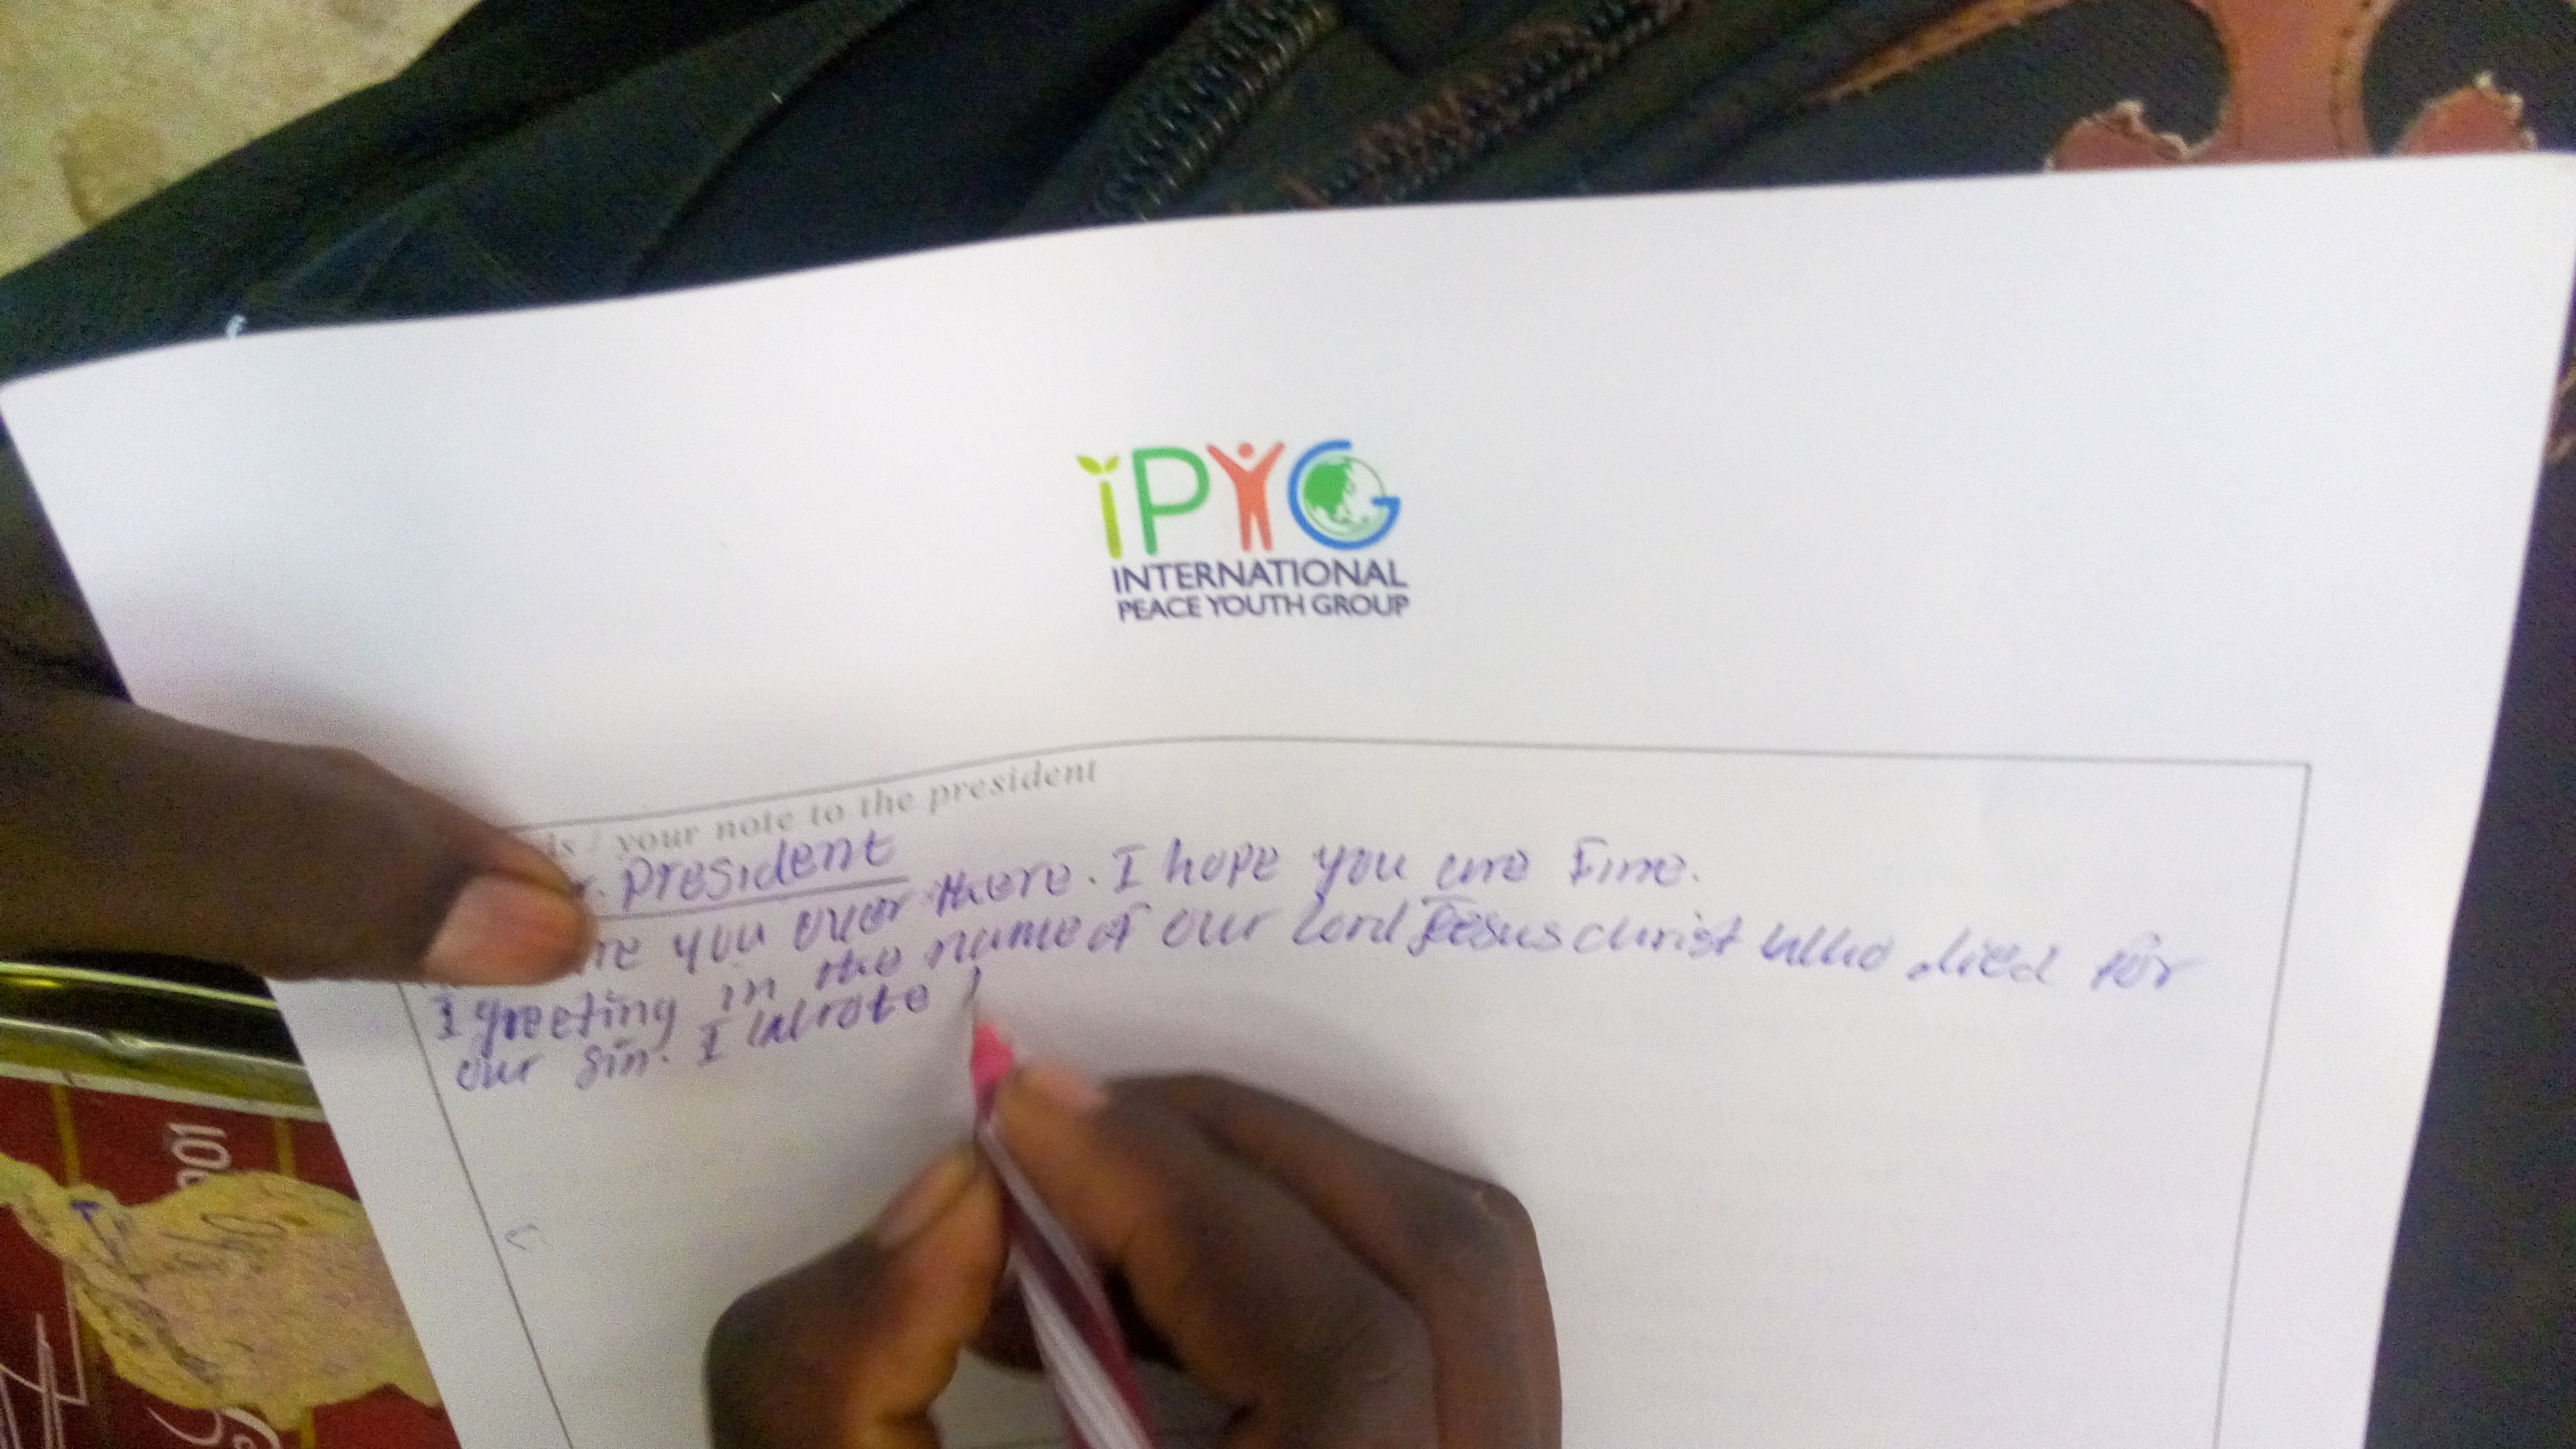 iPYG
INTERNATIONAL
PEACE YOUTH GROUP
your note to the president
President
you over there. I hope you are Fine.
I greeting in the name of our lord Jesus christ who died for
our sin. I wrote
001